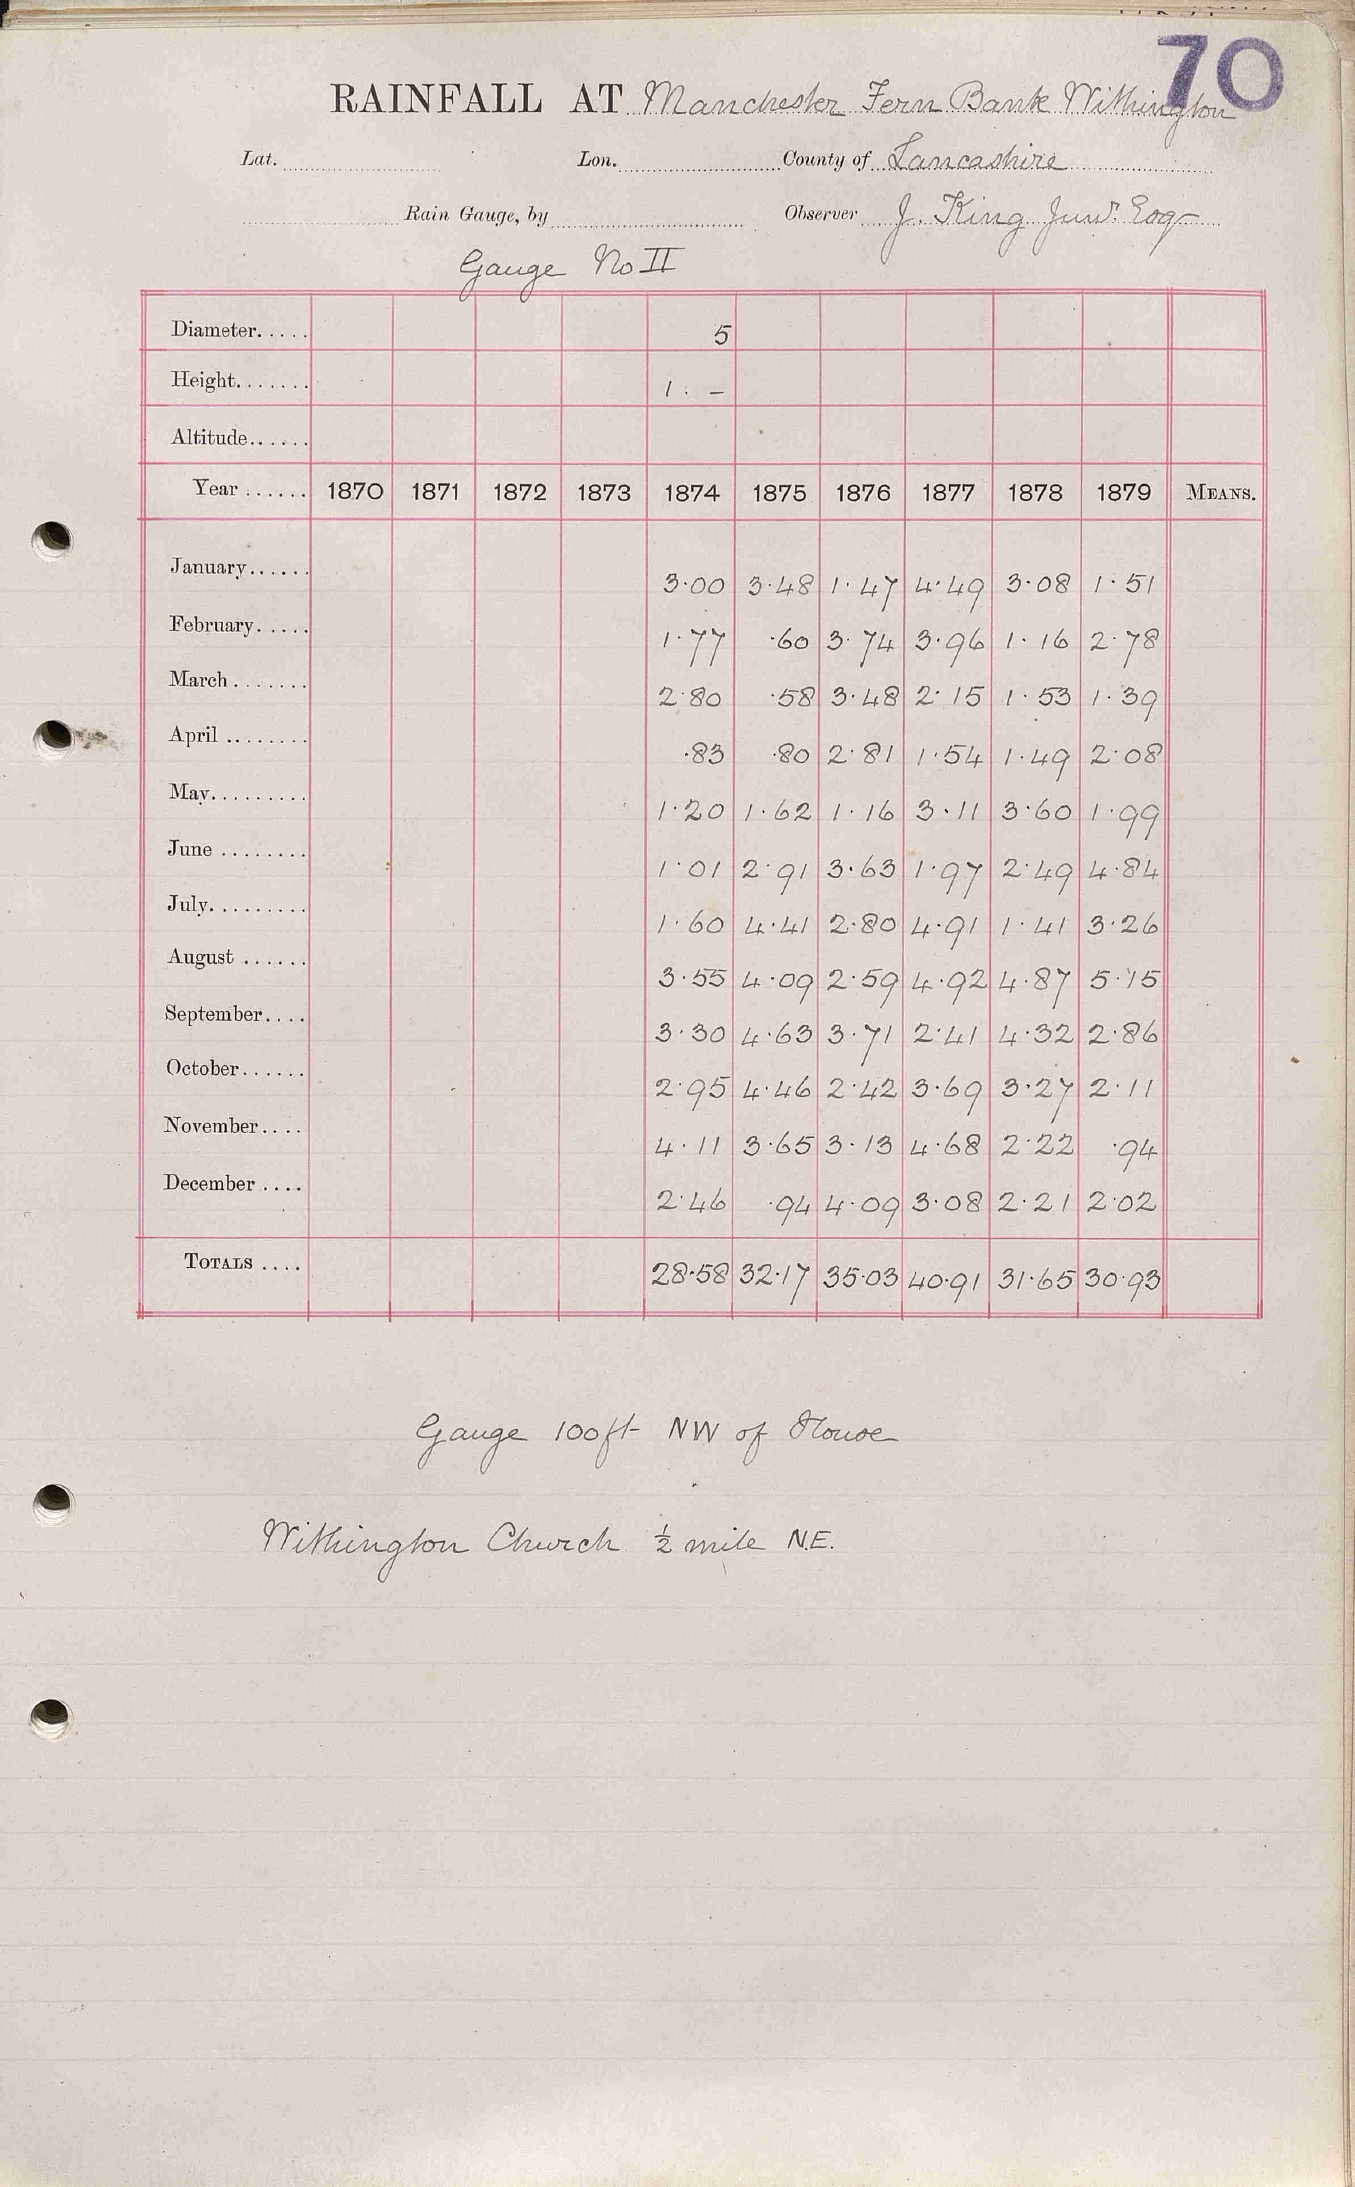 70
RAINFALL AT Manchester Fern Bank Withington
Lat. Lon. County of Lancashire
Rain Gauge, by Observer J. King Junr. Esq
Gauge No II
Diameter..... 5
Height....... 1. –
Altitude......
Year ...... 1870 1871 1872 1873 1874 1875 1876 1877 1878 1879 MEANS.
January...... 3·00 3·48 1·47 4·49 3·08 1·51
February..... 1·77 ·60 3·74 3·96 1·16 2·78
March ....... 2·80 ·58 3·48 2·15 1·53 1·39
April ........ ·83 ·80 2·81 1·54 1·49 2·08
May......... 1·20 1·62 1·16 3·11 3·60 1·99
June ........ 1·01 2·91 3·63 1·97 2·49 4·84
July......... 1·60 4·41 2·80 4·91 1·41 3·26
August ...... 3·55 4·09 2·59 4·92 4·87 5·15
September.... 3·30 4·63 3·71 2·41 4·32 2·86
October...... 2·95 4·46 2·42 3·69 3·27 2·11
November.... 4·11 3·65 3·13 4·68 2·22 ·94
December .... 2·46 ·94 4·09 3·08 2·21 2·02
TOTALS .... 28·58 32·17 35·03 40·91 31·65 30·93
Gauge 100ft NW of House
Withington Church ½ mile N.E.